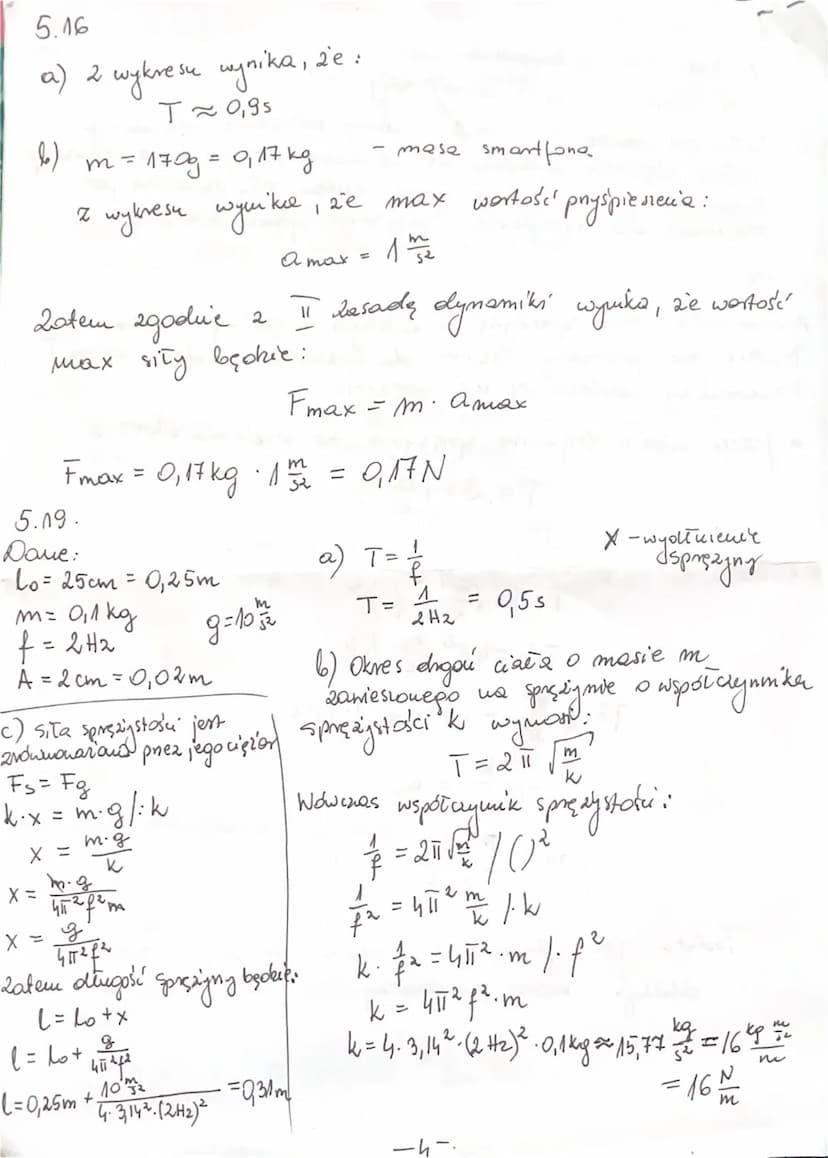 5.16
a) z wykresu wynika, że:
T ≈ 0,9s
b) m = 170g = 0,17kg - masa smartfona
z wykresu wynika, że max wartość przyśpieszenia:
a max = 1 m/s²
Zatem zgodnie z II zasadą dynamiki wynika, że wartość
max siły będzie:
Fmax = m · amax
Fmax = 0,17kg · 1 m/s² = 0,17N
5.19.
Dane:
L₀ = 25cm = 0,25m
m = 0,1kg
g = 10 m/s²
f = 2Hz
A = 2cm = 0,02m
a) T = 1/f
T = 1/2Hz = 0,5s
X - wydłużenie
sprężyny
b) Okres drgań ciała o masie m
zawieszonego na sprężynie o współczynniku
sprężystości k wynosi:
T = 2π √(m/k)
Wówczas współczynnik sprężystości:
1/f = 2π √(m/k) /()²
1/f² = 4π² m/k /·k
k · 1/f² = 4π² · m /· f²
k = 4π² f² · m
k = 4 · 3,14² · (2Hz)² · 0,1kg ≈ 15,77 kg/s² = 16 kg m/s² / m
= 16 N/m
c) siła sprężystości jest
zrównoważona przez jego ciężar
Fs = Fg
k · x = m · g /: k
x = m·g/k
x = m·g/4π²f²m
x = g/4π²f²
Zatem długość sprężyny będzie:
l = L₀ + x
l = L₀ + g/4π²f²
l = 0,25m + 10 m/s² / 4·3,14²·(2Hz)² = 0,31m
-4-